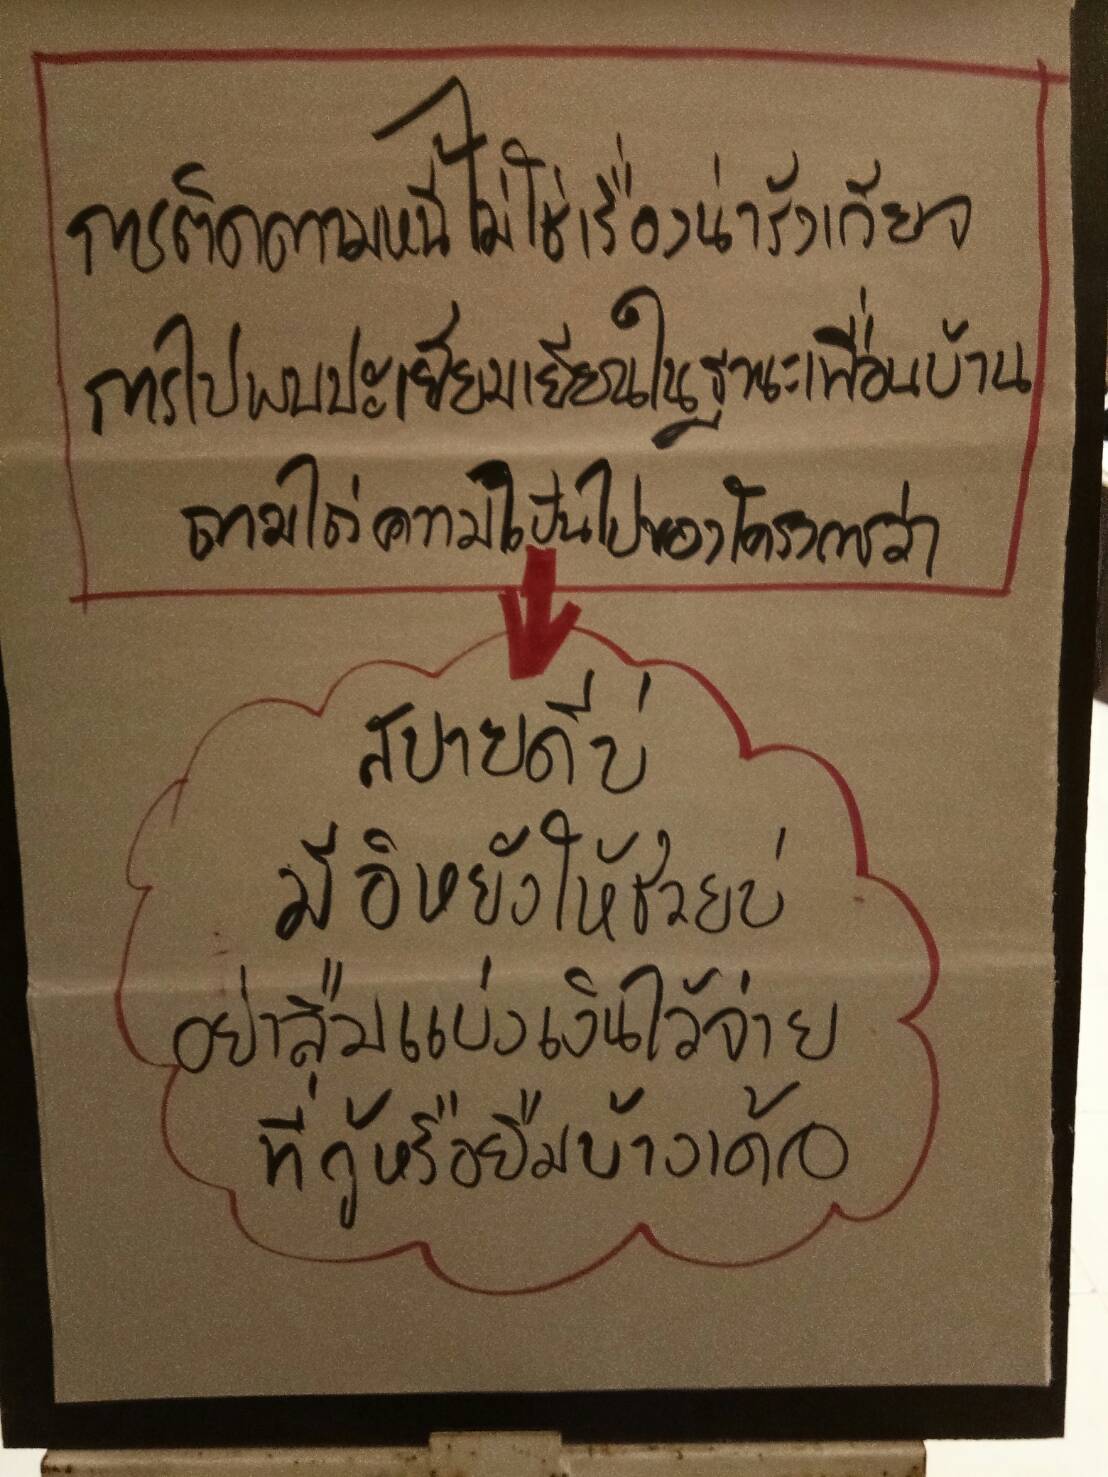 การติดตามหนี้ไม่ใช่เรื่องน่ารังเกียจ
การไปพบปะเยี่ยมเยียนในฐานะเพื่อนบ้าน
ถามไถ่ความเป็นไปของโครงการว่า
สบายดีบ่
มีอิหยังให้ช่วยบ่
อย่าลืมแบ่งเงินไว้จ่าย
ที่กู้หรือยืมบ้างเด้อ